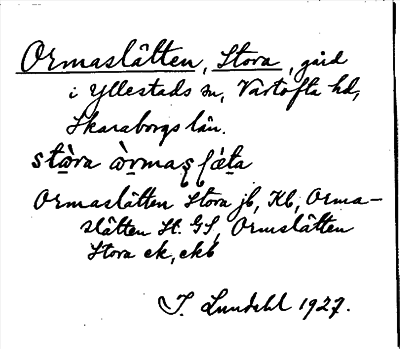 Ormaslätten, Stora, gård
i Yllestads sn, Vartofta hd,
Skaraborgs län.
stɑ̀ra
Ormaslätten Stora jb, Kb, Orma-
slätten St. GS, Ormslätten
Stora ek, ekb
I. Lundahl 1927.